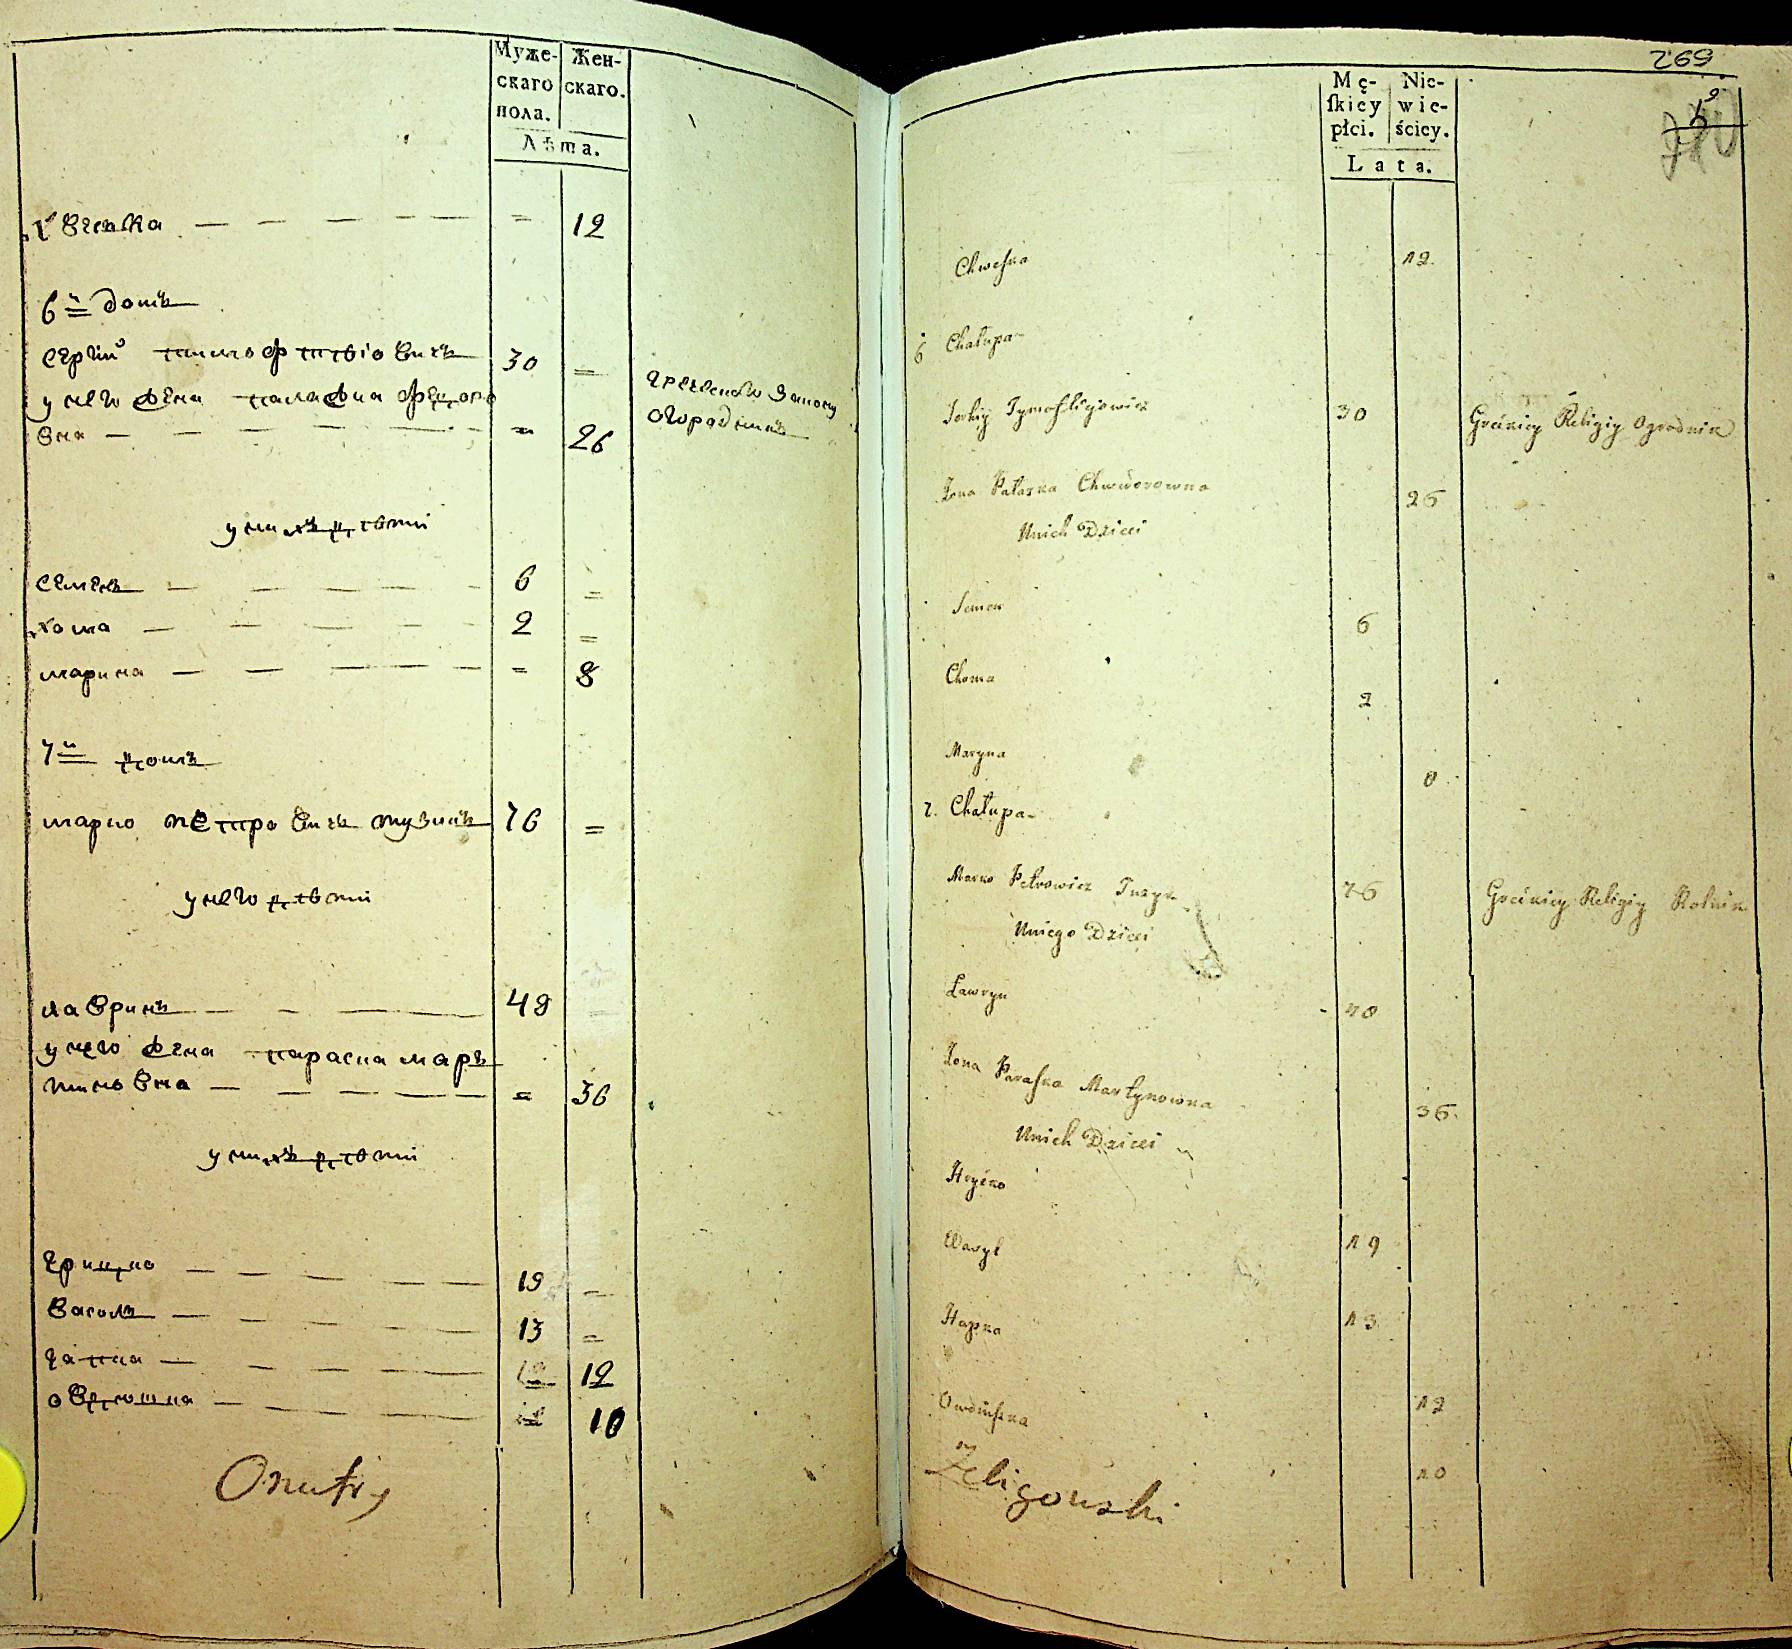 Муже-
скаго
пола.
Жен-
скаго.
Лѣта.
хвеська 12
6й домъ
сергий тимофѣовичъ 30
у него жена палажка федоро
вна 26
греческого закону
огородникъ
у нихъ дѣти
семенъ 6
хома 2
марина 8
7й домъ
марко петровичъ тузикъ 76
у него дѣти
лавринъ 48
у него жена параска мар
тиновна 36
у нихъ дѣти
грицко 19
василь 13
гапка 12
овдюшка 10
Onufry
592
9
Mę-
ſkiey
płci.
Nie-
wie-
ściey.
Lata.
Chweſka 12
6 Chałupa
Serhiy Tymofiiejowicz 30 Gréckiey Religiy Ogrodnik
Żona Pałaszka Chwedorowna 26
Unich Dzieci
Semen 6
Choma 2
Maryna 8
7. Chałupa
Marko Petrowicz Tuzyk 76 Gréckiey Religiy Rolnik
Uniego Dzieci
Ławryn 48
Żona Paraſka Martynowna 36
Unich Dzieci
Hryćko 19
Wasyl 13
Hapka 12
Owduſzka 10
Żeligowski